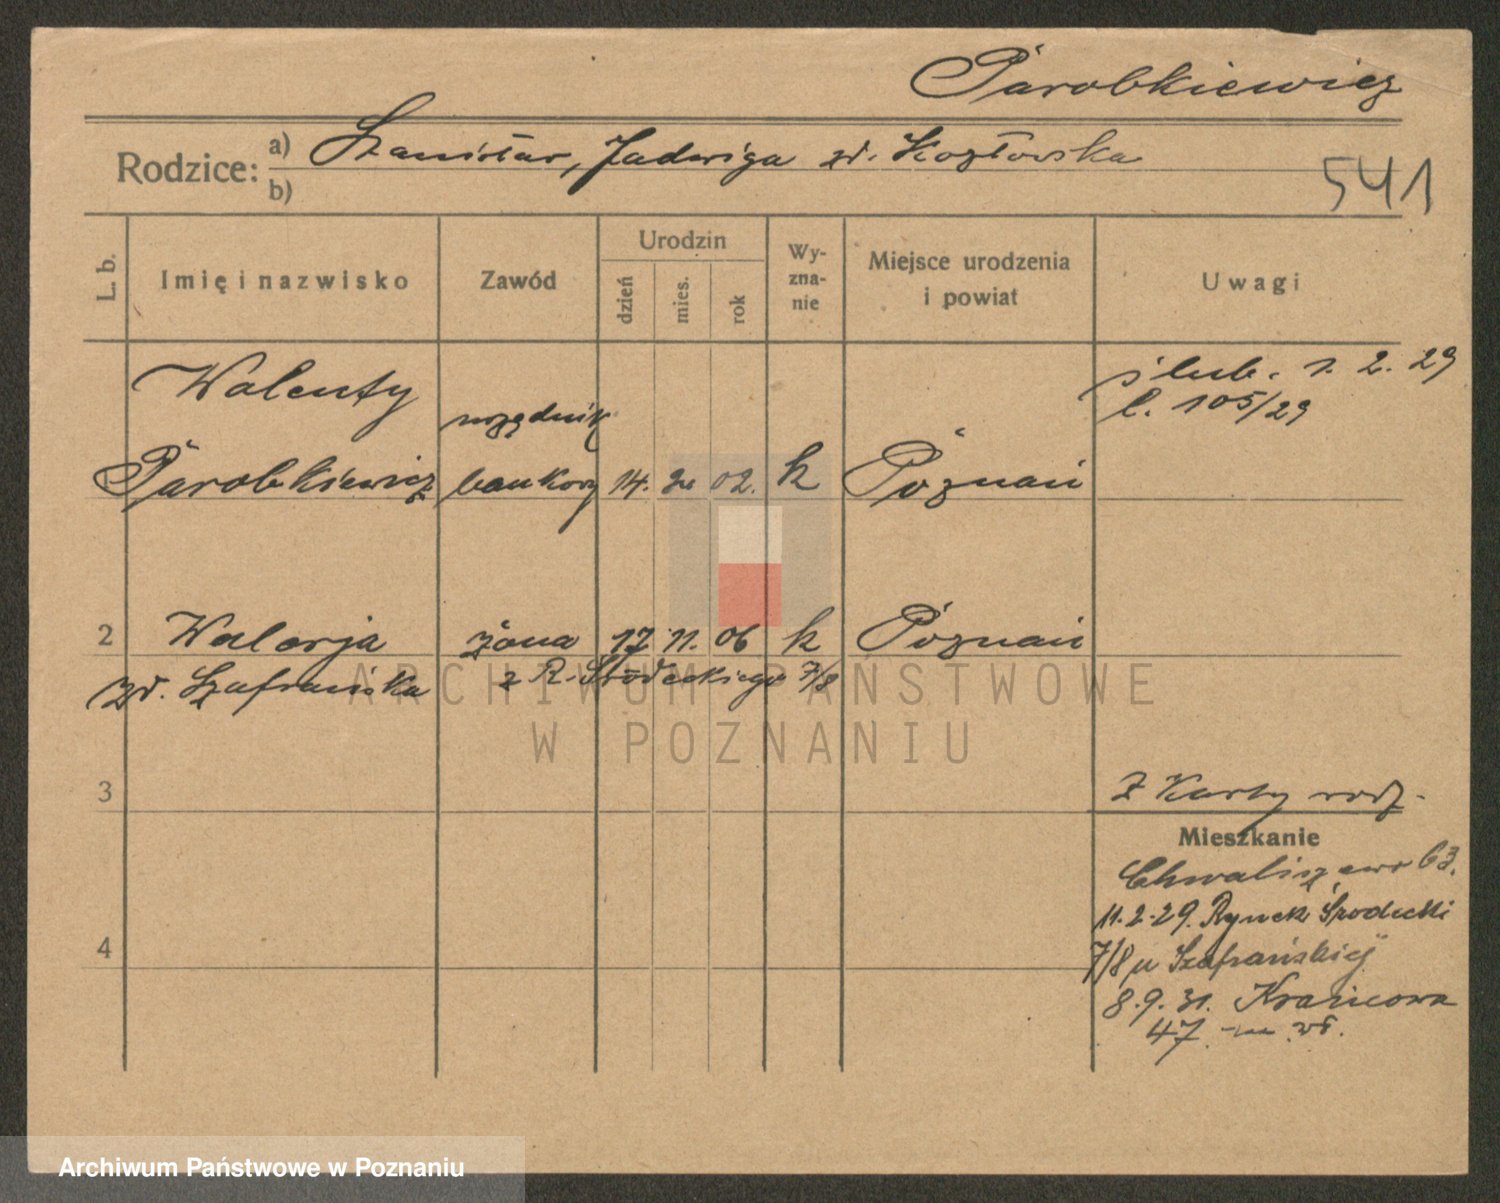 Parobkiewicz
Rodzice: a) Stanisław, Jadwiga zd. Kozłowska
b)
541
L. b.
Imię i nazwisko
Zawód
Urodzin
dzień
mies.
rok
Wy-
zna-
nie
Miejsce urodzenia
i powiat
Uwagi
ślub. 1. 2. 29
l. 105/29
Walenty
Parobkiewicz
urzędnik
bankowy
14. 2. 02. k Poznań
2 Walerja żona 17 11. 06 k Poznań
zd. Szafrańska z R. Śródeckiego 7/8
ARCHIWUM PAŃSTWOWE
W POZNANIU
3
Z Karty rodz.
Mieszkanie
Chwaliszewo 63.
11.2.29. Rynek Śródecki
7/8 u Szafrańskiej
4
8.9.31. Krańcowa
47.
Archiwum Państwowe w Poznaniu